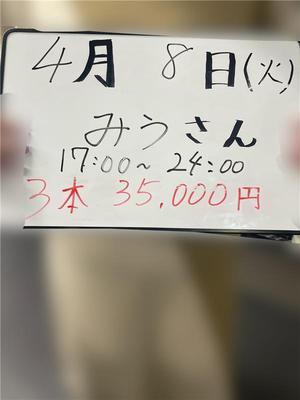 4月 8日(火)
みうさん
17:00~ 24:00
3本 35,000円